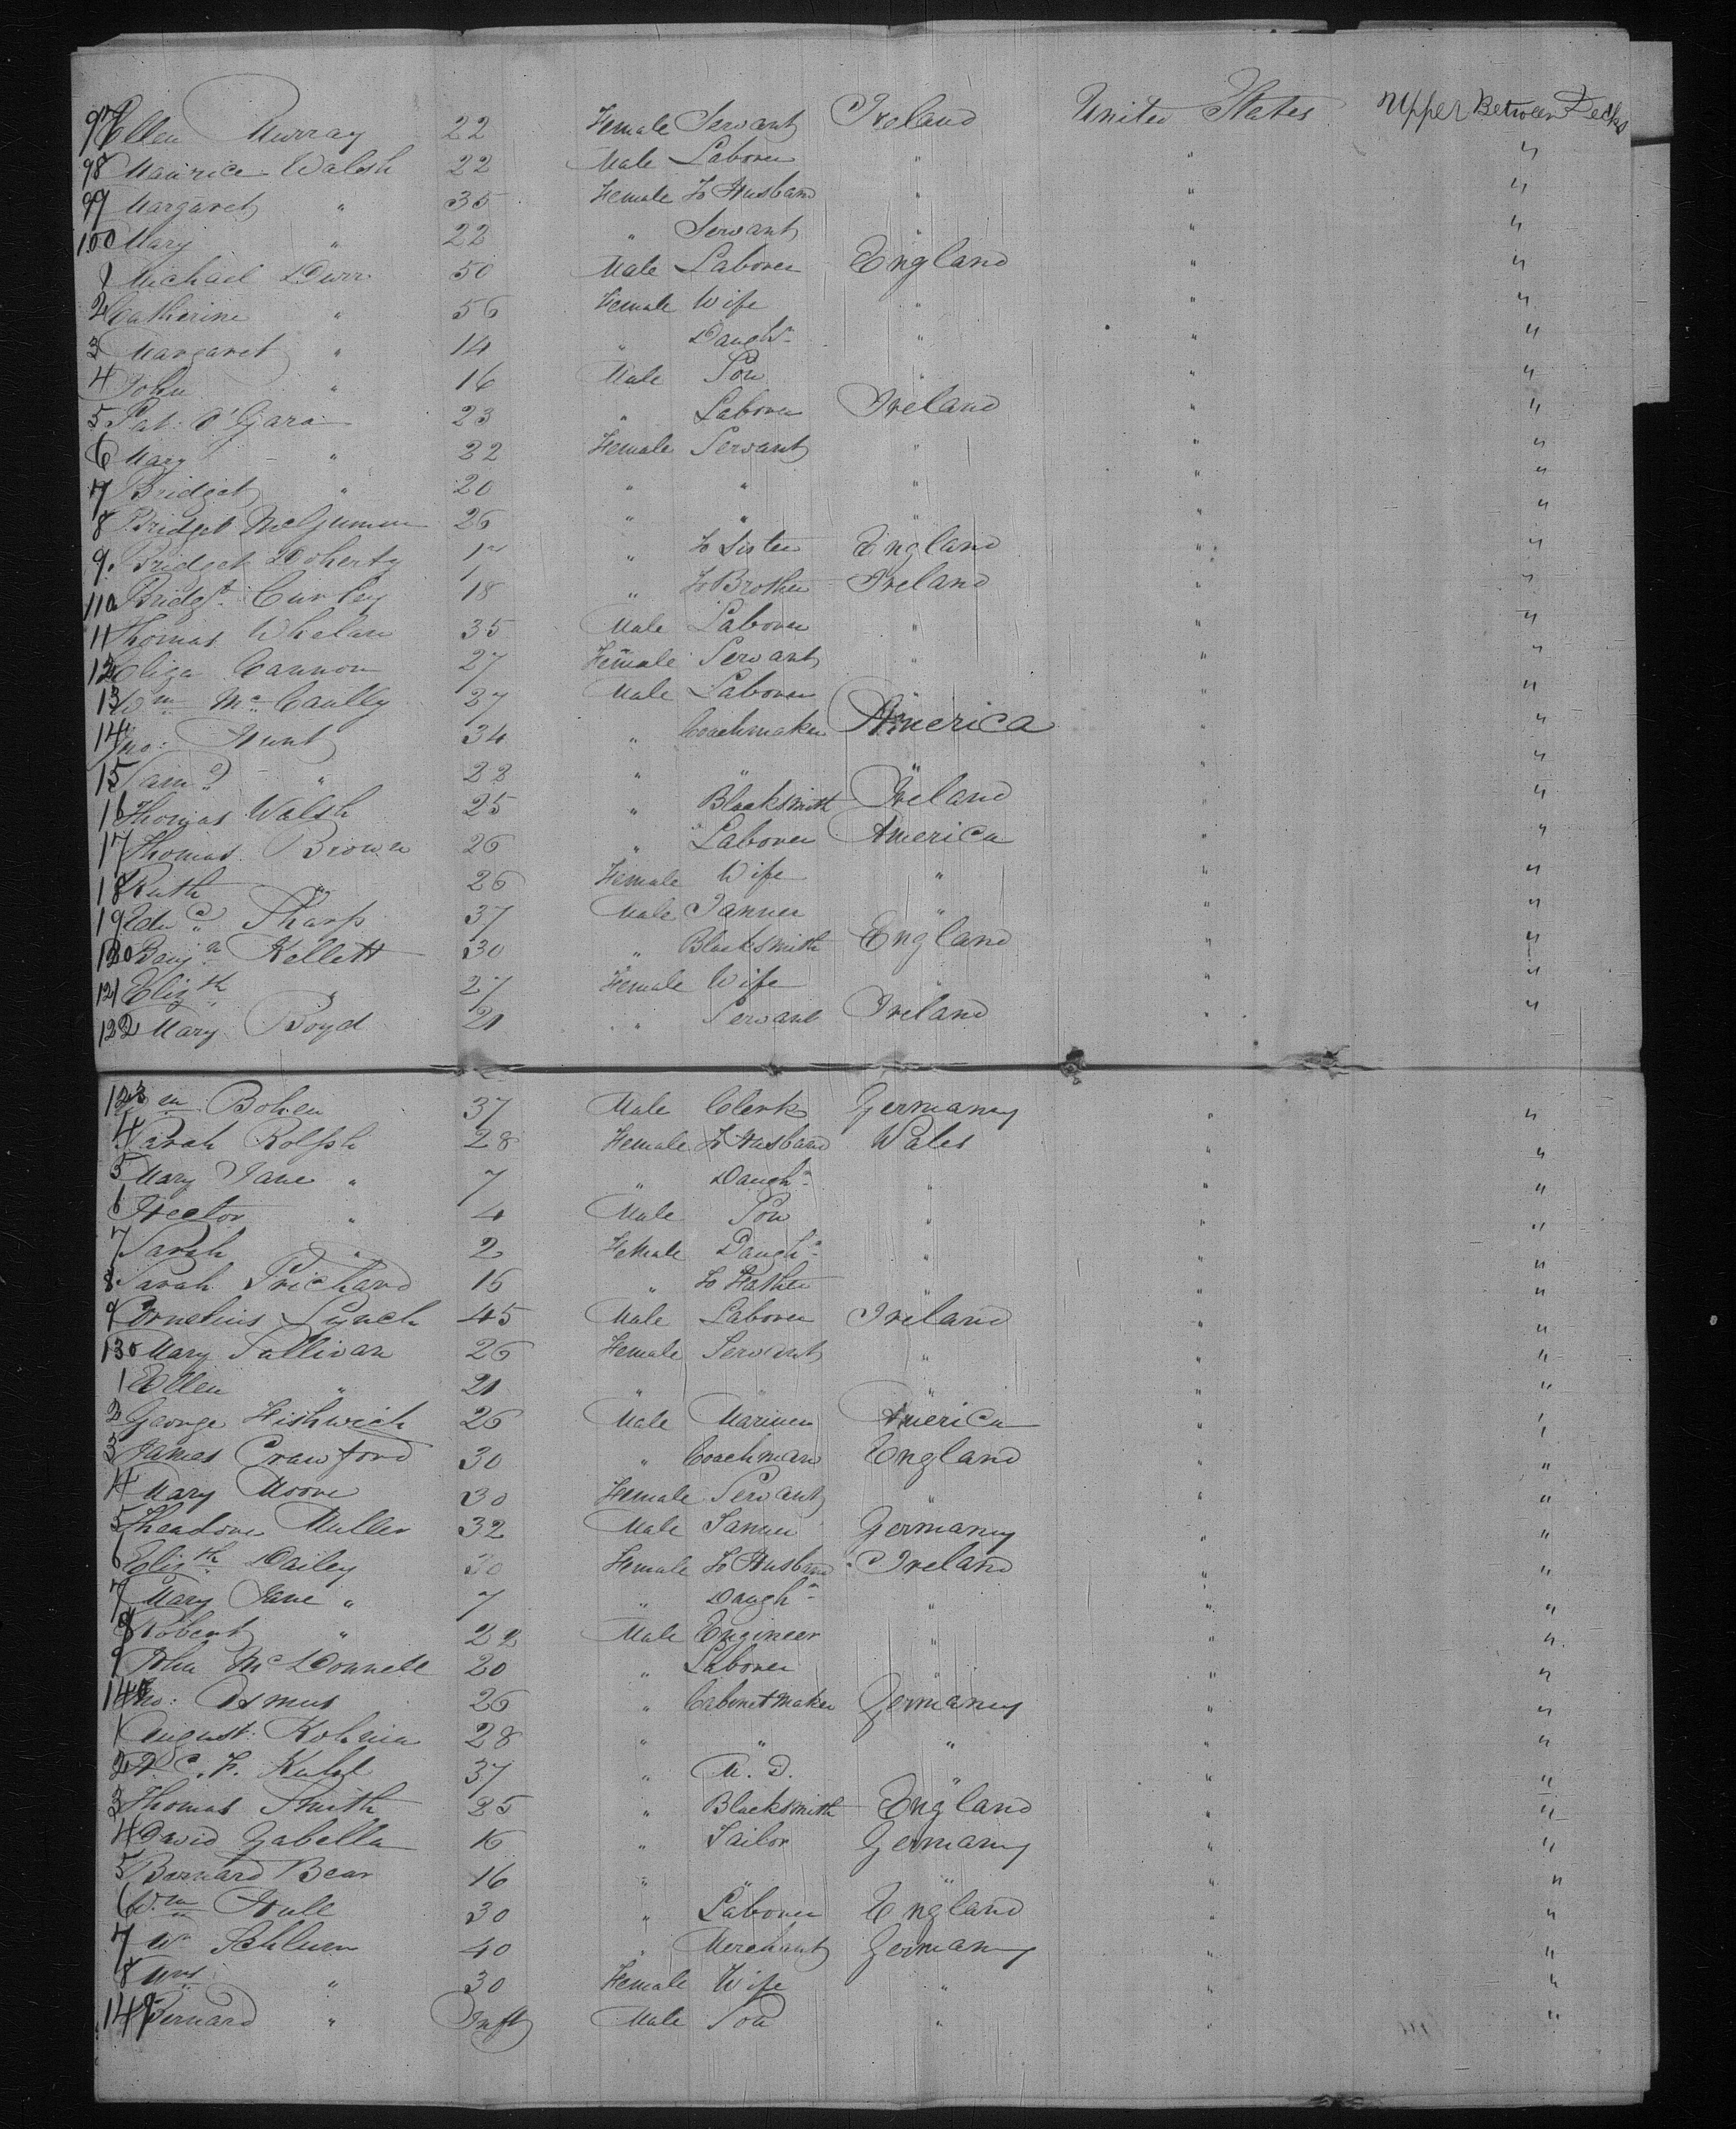 97 Ellen Murray 22 Female Servant Ireland United States Upper Between Decks
98 Maurice Walsh 22 Male Laborer " " "
99 Margaret " 35 Female To Husband " " "
100 Mary " 22 " Servant " " "
1 Michael Durr 50 Male Laborer England " "
2 Catherine " 56 Female Wife " " "
3 Margaret " 14 " Daughr " " "
4 John " 16 Male Son " " "
5 Pat. O'Gara 23 " Laborer Ireland " "
6 Mary " 22 Female Servant " " "
7 Bridget " 20 " " " " "
8 Bridget 26 " " " " "
9 Bridget Doherty 17 " To Sister England " "
110 Bridgt Curley 18 " To Brother Ireland " "
11 Thomas Whelan 35 Male Laborer " " "
12 Eliza Cannon 27 Female Servant " " "
13 Wm McCaully 27 Male Laborer " " "
14 Jno: Hunt 34 " Coachmaker America " "
15 " 22 " " " " "
16 Thomas Walsh 25 " Blacksmith Ireland " "
17 Thomas Brown 26 " Laborer America " "
18 Ruth " 26 Female Wife " " "
19 Edwd Sharp 37 Male Tanner " " "
120 Benjn Kellett 30 " Blacksmith England " "
121 Elizth " 27 Female Wife " " "
122 Mary Boyd 21 " Servant Ireland " "
123 Wm Bohen 37 Male Clerk Germany " "
4 Sarah Rolph 28 Female To Husband Wales " "
5 Mary Jane " 7 " Daughr " " "
6 Hector " 4 Male Son " " "
7 Sarah " 2 Female Daughr " " "
8 Sarah Prichard 16 " To Father " " "
9 Cornelius Lynch 45 Male Laborer Ireland " "
130 Mary Sullivan 26 Female Servant " " "
1 Ellen " 21 " " " " "
2 George Fishwick 26 Male Mariner America " "
3 James Crawford 30 " Coachman England " "
4 Mary Moore 30 Female Servant " " "
5 Theadore Muller 32 Male Tanner Germany " "
6 Elizth Dailey 30 Female To Husband Ireland " "
7 Mary Jane " 7 " Daughr " " "
8 Robert " 22 Male Engineer " " "
9 John McDonnell 20 " Laborer " " "
140 Jno: Asmus 26 " Cabinet Maker Germany " "
1 August 28 " " " " "
2 C. F. Kuhl 37 " M. D. " " "
3 Thomas Smith 25 " Blacksmith England " "
4 David Gabella 16 " Tailor Germany " "
5 Bernard Bear 16 " " " " "
6 Wm Hull 30 " Laborer England " "
7 W Schlum 40 " Merchant Germany " "
8 Mrs " 30 Female Wife " " "
149 Bernard " Inft Male Son " " "